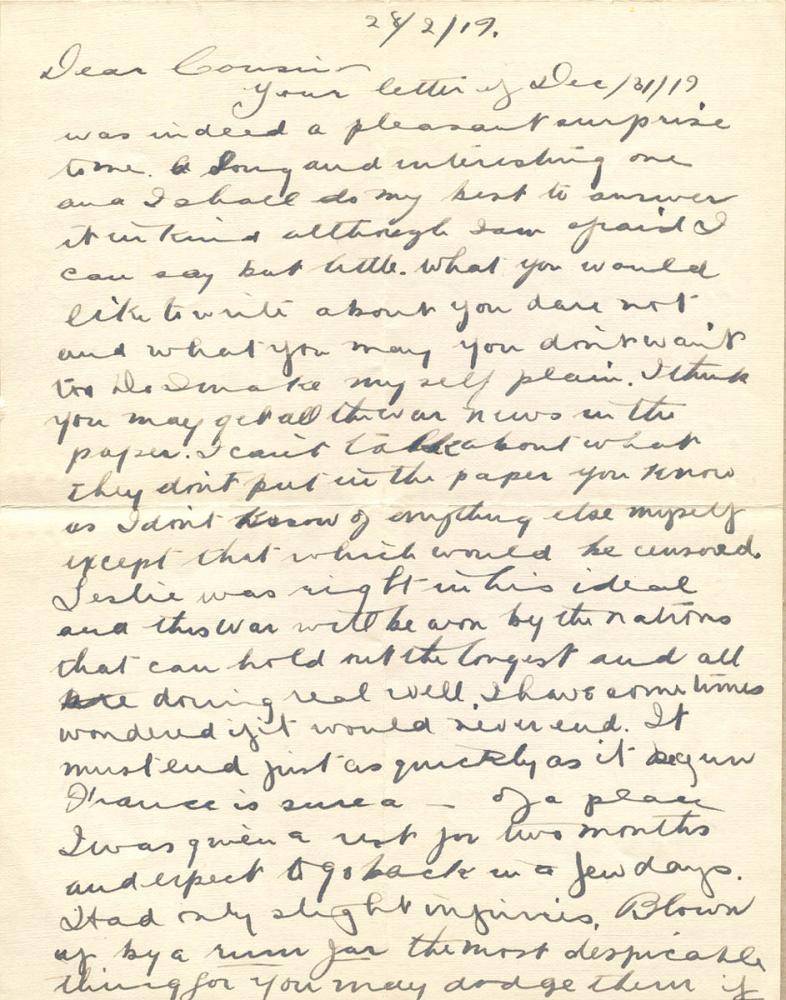 28/2/19.
Dear Cousin
Your letter of Dec/31/19
was indeed a pleasant surprise
to me. a long and interesting one
and I shall do my best to answer
it in kind although I am afraid I
can say but little. What you would
like to write about you dare not
and what you may you don't want
too Do I make myself plain. I think
you may get all the war news in the
paper. I can't talk about what
they don't put in the paper you know
as I don't know of anything else myself
except that which would be censored.
Leslie was right in his ideal
and this war will be won by the nations
that can hold out the longest and all
are doing real well. I have sometimes
wondered if it would never end. It
must end just as quickly as it begun
France is sure a — of a place
I was given a rest for two months
and expect to go back in a few days.
I Had only slight injuries. Blown
up by a rum jar the most despicable
thing for you may dodge them if